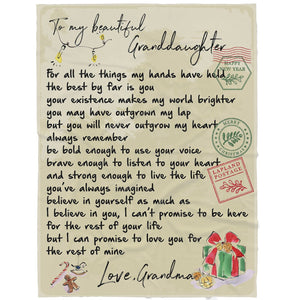 To my beautiful
Granddaughter
HAPPY
NEW YEAR
For all the things my hands have held
the best by far is you
your existence makes my world brighter
you may have outgrown my lap
but you will never outgrow my heart
always remember
be bold enough to use your voice
brave enough to listen to your heart
and strong enough to live the life
you've always imagined
believe in yourself as much as
I believe in you, I can't promise to be here
for the rest of your life
but I can promise to love you for
the rest of mine
Love, Grandma
MERRY
CHRISTMAS
LAPLAND
POSTAGE